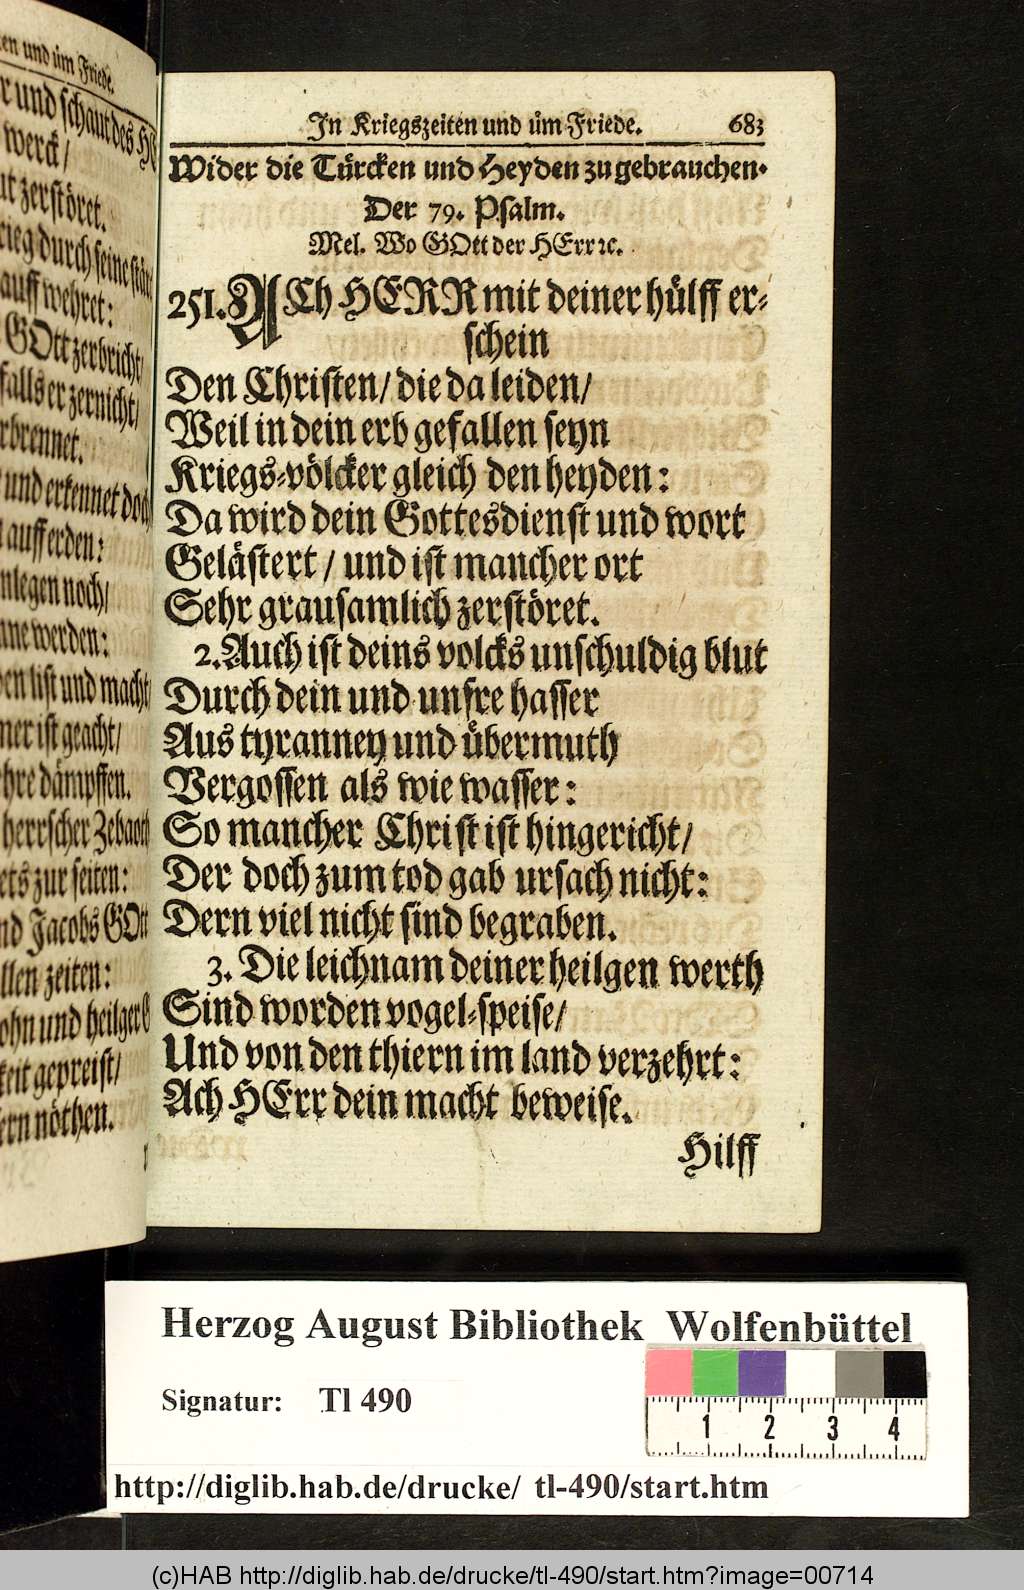 en und üm Friede.
r und schaut des HE
werck/
ut zerstöret.
rieg durch seine stär
auff wehret:
GOtt zerbricht/
falls er zernicht/
rbrennet.
und erkennet doch
auff erden:
nlegen noch/
ne werden:
en list und macht/
ner ist geacht/
hre dämpffen.
herrscher Zebaoth
ets zur seiten:
nd Jacobs GOtt
llen zeiten:
ohn und heilger G
keit gepreist/
ern nöthen.
In Kriegszeiten und üm Friede. 683
Wider die Türcken und Heyden zu gebrauchen.
Der 79. Psalm.
Mel. Wo GOtt der HErr ꝛc.
251. ACh HERR mit deiner hülff er-
schein
Den Christen/ die da leiden/
Weil in dein erb gefallen seyn
Kriegs-völcker gleich den heyden:
Da wird dein Gottesdienst und wort
Gelästert/ und ist mancher ort
Sehr grausamlich zerstöret.
2. Auch ist deins volcks unschuldig blut
Durch dein und unsre hasser
Aus tyranney und übermuth
Vergossen als wie wasser:
So mancher Christ ist hingericht/
Der doch zum tod gab ursach nicht:
Dern viel nicht sind begraben.
3. Die leichnam deiner heilgen werth
Sind worden vogel-speise/
Und von den thiern im land verzehrt:
Ach HErr dein macht beweise.
Hilff
Herzog August Bibliothek Wolfenbüttel
Signatur: Tl 490
1 2 3 4
http://diglib.hab.de/drucke/ tl-490/start.htm
(c)HAB http://diglib.hab.de/drucke/tl-490/start.htm?image=00714